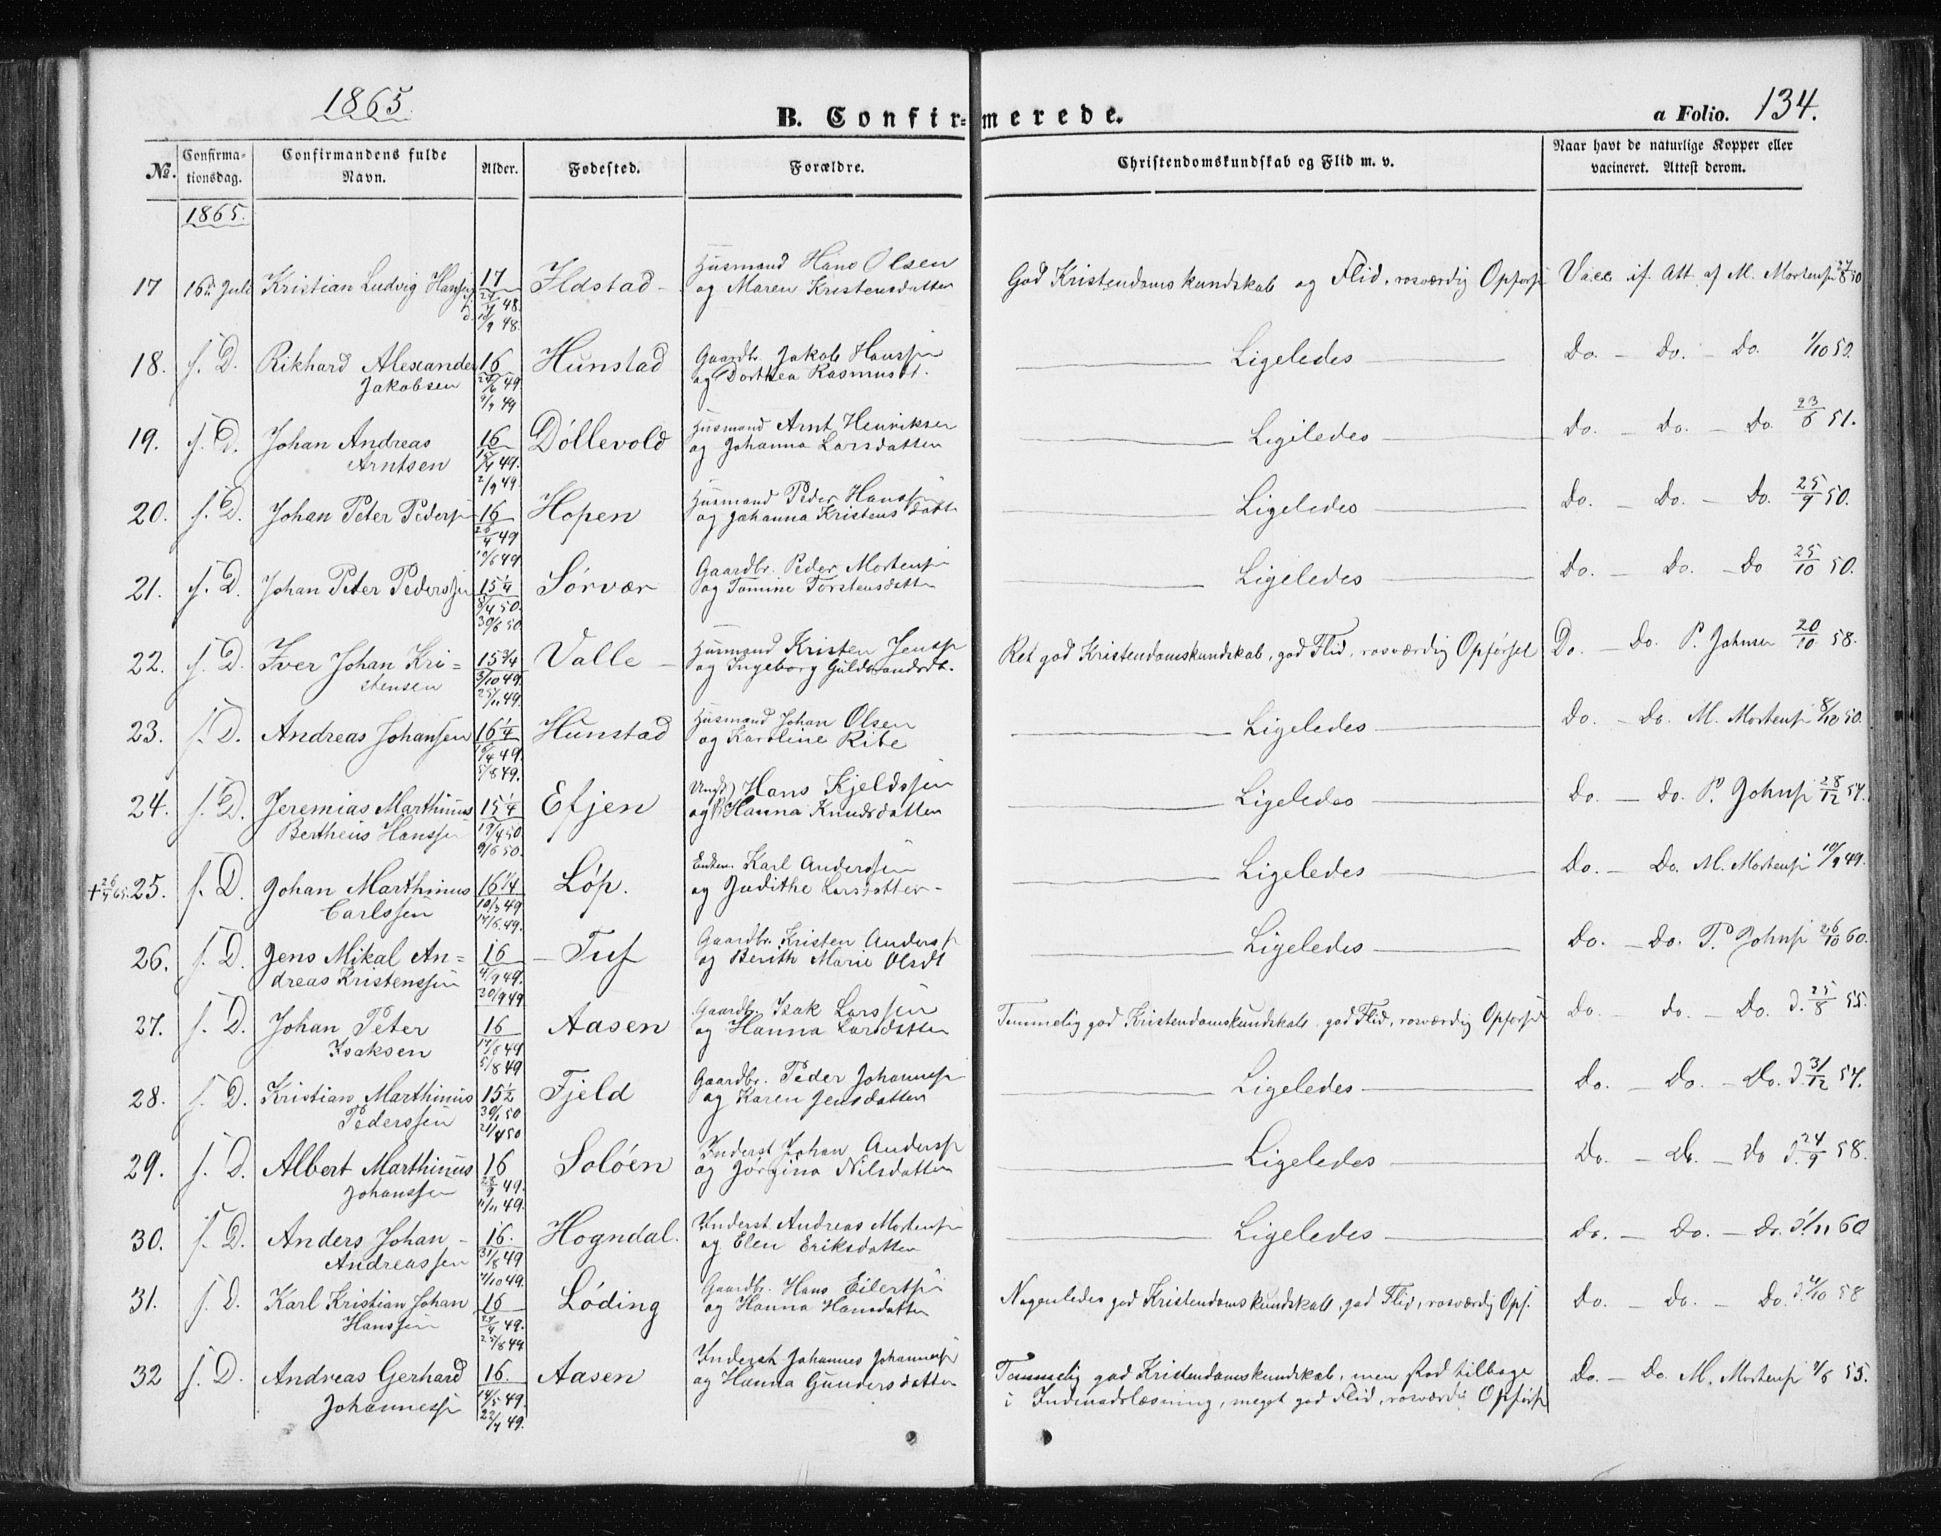 1865.
B. Confirmerede.
a Folio. 134.
No. Confirmationsdag. Confirmandens fulde Navn. Alder. Fødested. Forældre. Christendomskundskab og Flid m. v. Naar havt de naturlige Kopper eller vacineret. Attest derom.
1865.
17 16de Juli Kristian Ludvig Hanssen 17 Ildstad - Husmand Hans Olsen
og Maren Kristensdatter God Kristendomskundskab og Flid, rosværdig Opførsel Vacc. if. Att. af M. Mortensen 27/8 50
18. s. D. Rikhard Alexander 16 Hunstad Gaardbr. Jakob Hanssen Ligeledes Do. - Do. - Do. 1/10 50.
Jakobsen og Dorthea Rasmusd.
19. s. D. Johan Andreas 16 Döllevold Husmand Arnt Henriksen Ligeledes Do. - Do. - Do. 23/6 51.
Arntsen og Johanna Larsdatter
20. s. D. Johan Peter Pedersen 16 Hopen Husmand Peder Hanssen Ligeledes Do. - Do. - Do. 25/9 50.
og Johanna Kristensdatt
21. s. D. Johan Peter Pederssen 15 1/4 Sörvær Gaardbr. Peder Mortensen Ligeledes Do. - Do. - Do 25/10 50.
og Tomine Torstensdatter
22. s. D. Iver Johan Kri= 15 3/4 Valle - Husmand Kristen Jenssen Ret god Kristendomskundskab, god Flid, rosværdig Opførsel Do. - Do. P. Johnsen 20/10 58.
stensen 3/10 49. og Ingeborg Guldbrandsdt.
23. s. D. Andreas Johansen 16 1/4 Hunstad Husmand Johan Olsen Ligeledes Do. - Do. M. Mortensen 8/10 50.
5/8 49. og Karoline Ribe
24. s. D. Jeremias Marthinus 15 1/4 Efjen Ungk. Hans Kjeldssen Ligeledes Do. - Do. P. Johnsen 28/12 57.
Bertheus Hanssen 19/4 50 og P. Hanna Knudsdatter
25. s. D. Johan Marthinus 16 1/4 Løp. Enkem. Karl Anderssen Ligeledes Do. - Do. M. Mortensen 10/9 49.
Carlssen 10/3 49 og Judithe Larsdatter -
26. s. D. Jens Mikal An= 16 - Tuf Gaardbr. Kristen Andersen Ligeledes Do. - Do. P. Johnsen 26/10 60.
dreas Kristenssen 20/9 49 og Berith Marie Olsdt
27. s. D. Johan Peter 16 Aasen Gaardbr. Isak Larssen Temmelig god Kristendomskundskab, god Flid, rosværdig Opførsel Do. - do. - Do. d. 25/8 55.
Isaksen 5/8 49 og Hanna Larsdatter
28. s. D. Kristian Marthinus 15 1/2 Fjeld Gaardbr. Peder Johannessen Ligeledes Do. - Do. - Do. d. 31/12 57.
Pederssen 21/4 50 og Karen Jensdatter
29. s. D. Albert Marthinus 16 Solöen Inderst Johan Andersen Ligeledes Do. - Do. - Do d. 24/9 58.
Johanssen 11/11 49. og Jörgina Nilsdatter
30. s. D. Anders Johan - 16. Hogndal. Inderst Andreas Mortensen Ligeledes Do. - Do. - Do. d. 1/11 60
Andreassen 31/8 49 og Elen Eriksdatter
31. s. D. Karl Kristian Johan 16 Löding Gaardbr. Hans Eilertsen Nogenledes god Kristendomskundskab, god Flid, rosværdig Opf. Do. - Do. - Do. d. 4/10 58
Hanssen og Hanna Hansdatter
32 s. D. Andreas Gerhard 16. Aasen Inderst Johannes Johannessen Temmelig god Kristendomskundskab, men stod tilbage Do. - Do. M. Mortensen 55.
Johannessen 14/5 49. og Hanna Gundersdatter i Indenadslæsning, meget god Flid, rosværdig Opførsel